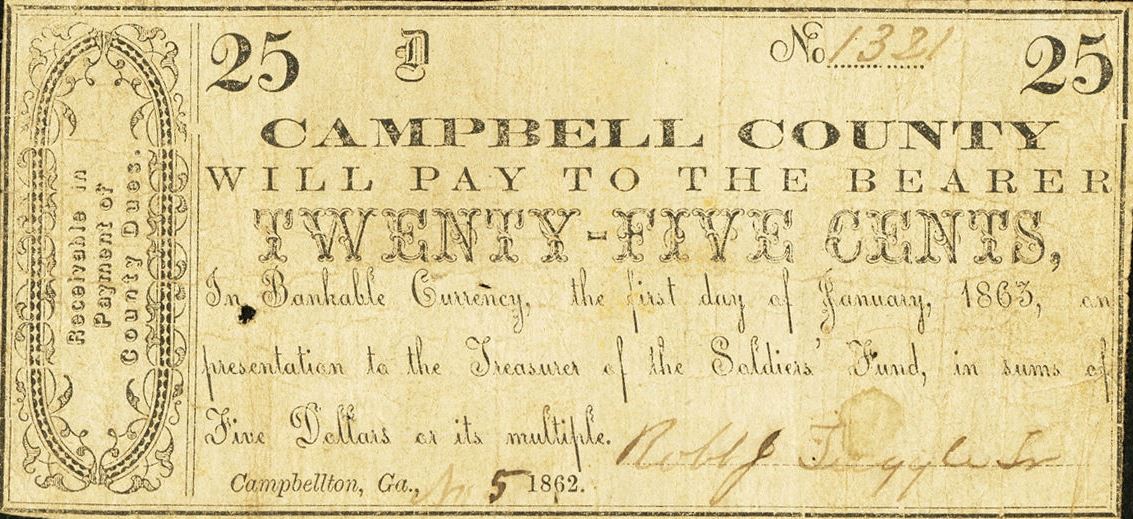 25 D No 1321 25
CAMPBELL COUNTY
WILL PAY TO THE BEARER
TWENTY-FIVE CENTS,
In Bankable Currency, the first day of January, 1863, on
presentation to the Treasurer of the Soldiers' Fund, in sums of
Five Dollars or its multiple.
Campbellton, Ga., 5 1862.
Receivable in
Payment of
County Dues.